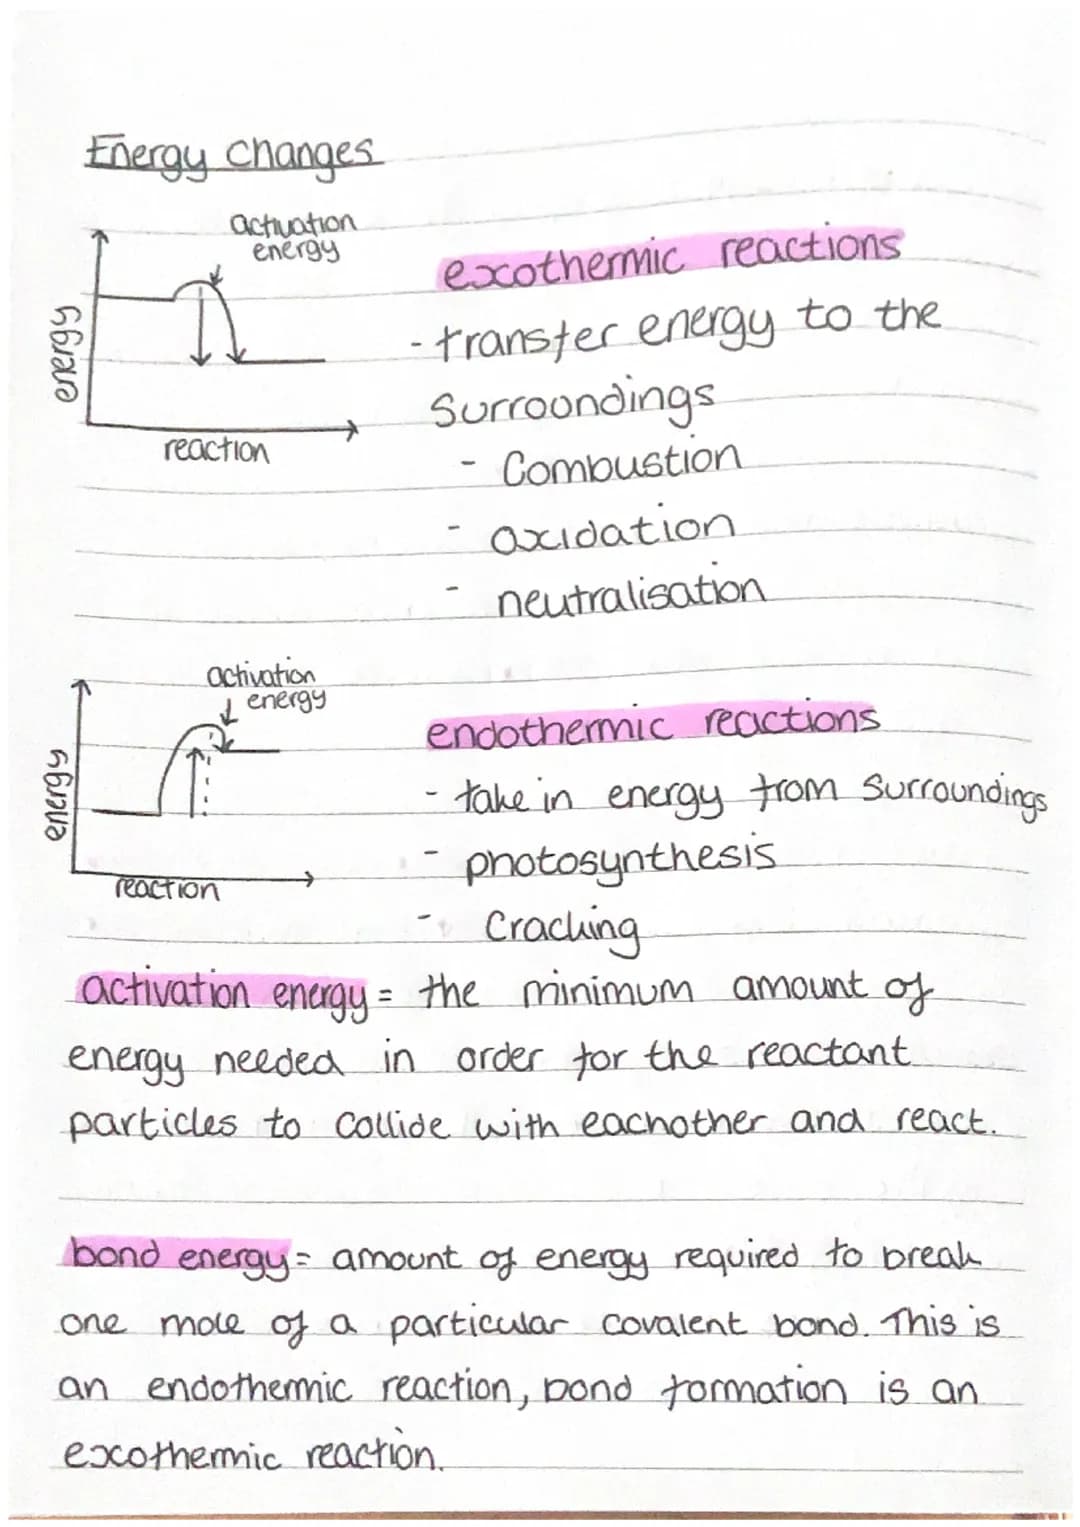 Energy changes
activation
energy
energy
reaction
exothermic reactions
- transfer energy to the
surroundings
- Combustion
- oxidation
- neutralisation
activation
energy
energy
reaction
endothermic reactions
- take in energy from surroundings
- photosynthesis
- Cracking
activation energy = the minimum amount of
energy needed in order for the reactant
particles to collide with eachother and react.
bond energy = amount of energy required to break
one mole of a particular covalent bond. This is
an endothermic reaction, bond formation is an
exothermic reaction.